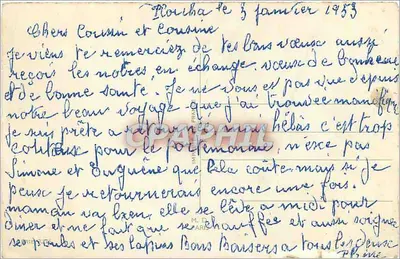 Plouha le 3 janvier 1953
Chers Cousin et Cousine
Je viens te remerciez de tes bons vœux aussi
reçois les notres en échange vœux de bonheur
et de bonne santé. Je ne vous est pas vue depuis
notre beau voyage que j'ai trouvée magnifique
je suis prète a mais hélas c'est trop
couteux pour le portemonnaie, n'esce pas
Simone et Eugène que cela coûte mais si je
peux je retournerais encore une fois.
maman va bien elle se lève a midi pour
diner et ne fait que se chauffee et aussi soigner
ses poules et ses lapins Bons Baisers a tous les deux